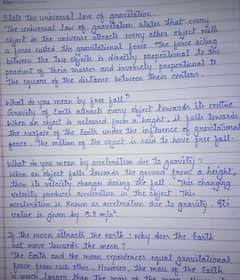 State the universal law of gravitation.
The universal law of gravitation states that every
object in the universe attracts every other object with
a force called the gravitational force. The force acting
between the two objects is directly proportional to the
product of their masses and inversely proportional to
the square of the distance between their centers.
What do you mean by free fall?
Gravity of Earth attracts every object towards its centre.
When an object is released from a height, it falls towards
the surface of the Earth under the influence of gravitational
force. The motion of the object is said to have free fall.
What do you mean by acceleration due to gravity?
When an object falls towards the ground from a height,
then its velocity changes during the fall. This changing
velocity produces acceleration in the object. This
acceleration is known as acceleration due to gravity. Its
value is given by 9.8 m/s².
If the moon attracts the earth, why does the Earth
not move towards the moon?
The Earth and the moon experiences equal gravitational
force from each other. However, the mass of the Earth